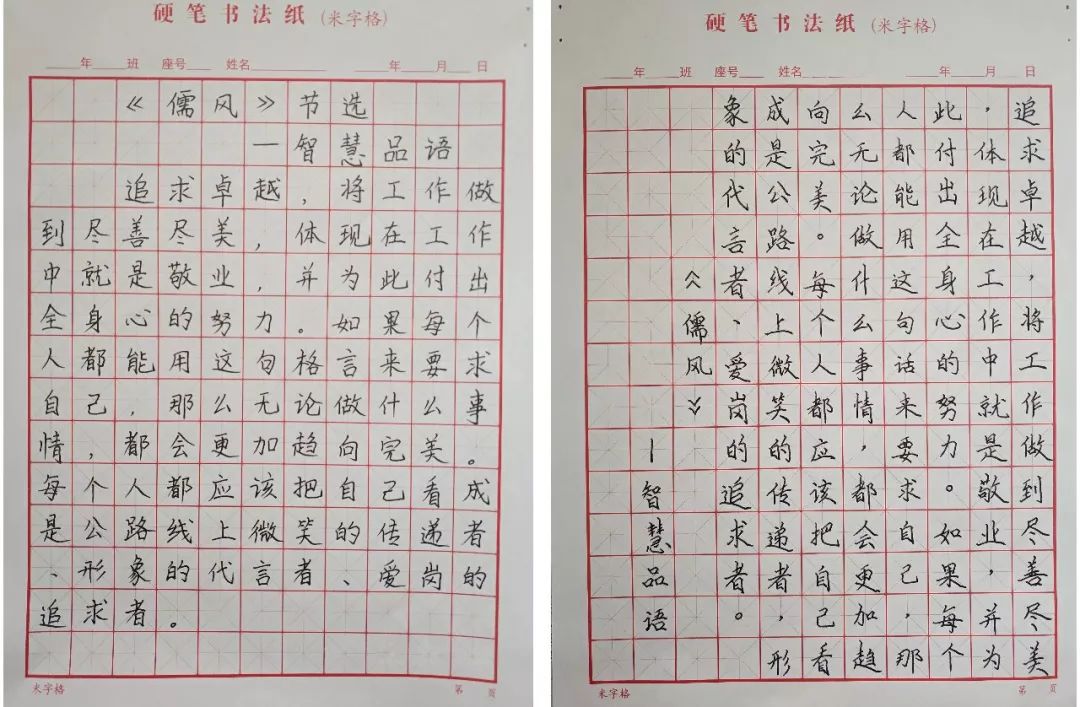 硬笔书法纸（米字格）
____年____班 座号____ 姓名____________ ____年____月____日
《儒风》节选
—智慧品语
追求卓越，将工作做
到尽善尽美，体现在工作
中就是敬业，并为此付出
全身心的努力。如果每个
人都能用这句格言来要求
自己，那么无论做什么事
情，都会更加趋向完美。
每个人都应该把自己看成
是公路线上微笑的传递者
、形象的代言者、爱岗的
追求者。
米字格 第 页
硬笔书法纸（米字格）
____年____班 座号____ 姓名____________ ____年____月____日
追求卓越，将工作做到尽善尽美
，体现在工作中就是敬业，并为
此付出全身心的努力。如果每个
人都能用这句话来要求自己，那
么无论做什么事情，都会更加趋
向完美。每个人都应该把自己看
成是公路线上微笑的传递者，形
象的代言者、爱岗的追求者。
《儒风》
—智慧品语
米字格 第 页